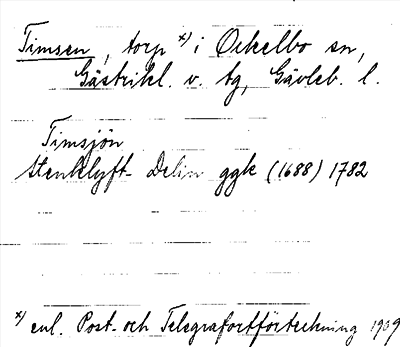 Timsen, torp x) i Ockelbo sn,
Gästrikl. v. tg, Gävleb. l.
Timsjön
Stenklyft- Delin ggk (1688) 1782
x) enl. Post- och Telegrafortförteckning 1909